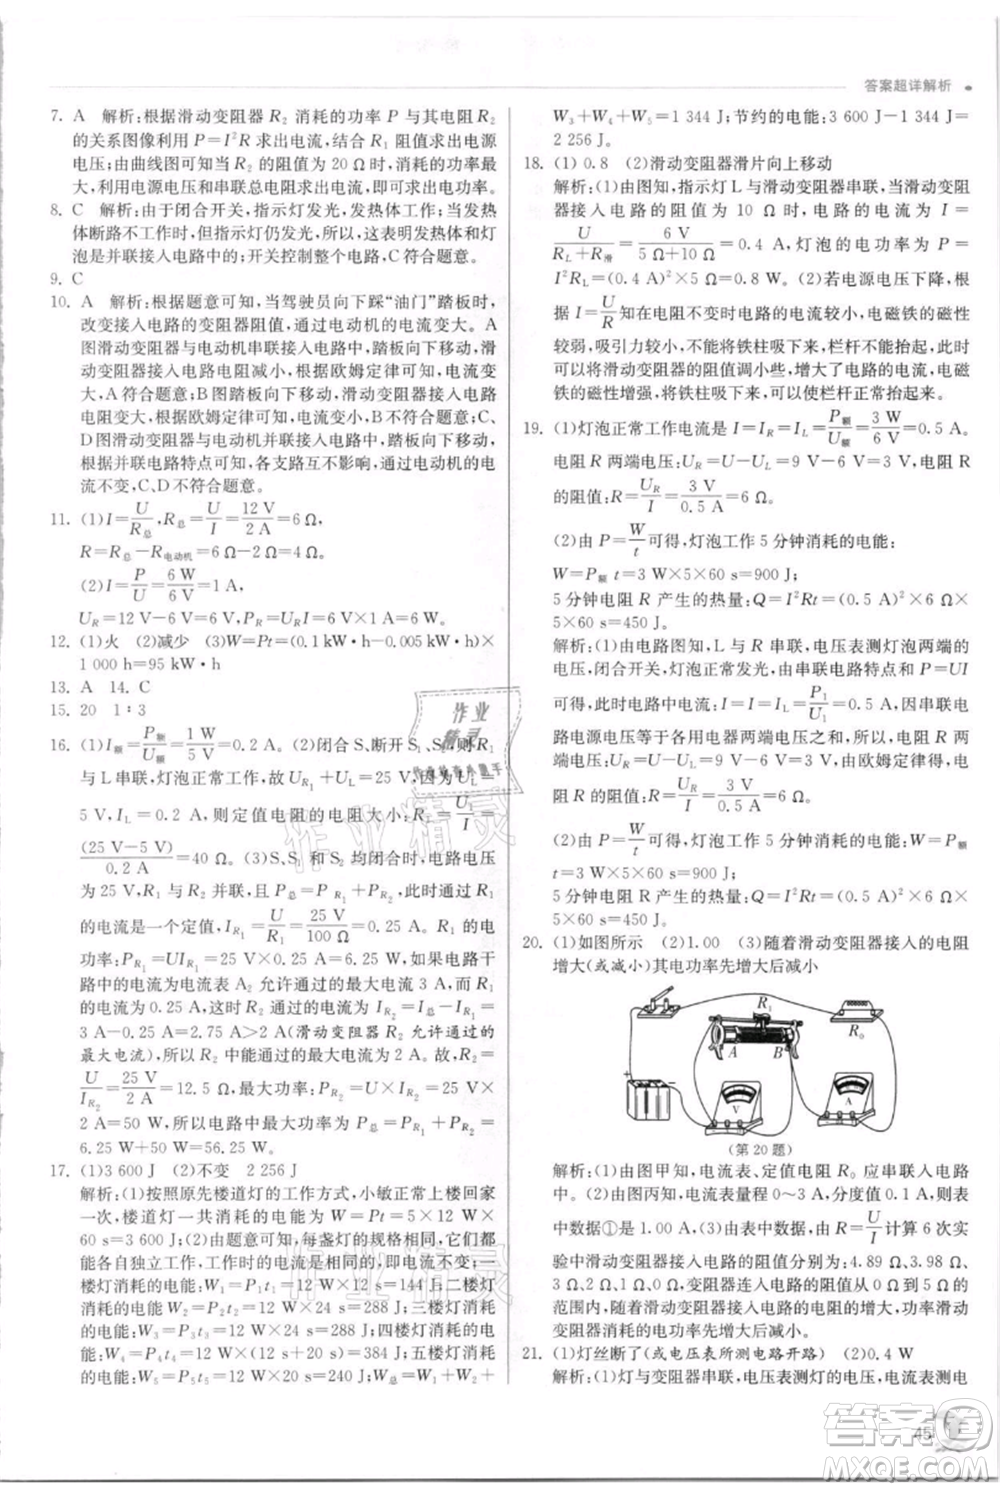 答案超详解析
7. A　解析:根据滑动变阻器 R₂ 消耗的功率 P 与其电阻R₂
的关系图像利用 P=I²R 求出电流,结合 R₁ 阻值求出电源
电压;由曲线图可知当 R₂ 的阻值为 20 Ω时,消耗的功率最
大,利用电源电压和串联总电阻求出电流,即可求得功率.
8. C　解析:由于闭合开关,指示灯发光,发热体工作;当发热
体断路不工作时,指示灯仍发光,所以,说明发热体和灯
泡是并联在电路中的;开关控制整个电路,C符合题意.
9. C
10. A　解析:根据题意可知,当驾驶员向下踩“油门”踏板时,
改变接入电路的变阻器阻值,通过电动机的电流变大。A
图滑动变阻器与电动机串联接入电路,踏板向下移动,滑
动变阻器接入电路电阻减小,根据欧姆定律可知,电流变
大,A符合题意;B图踏板向下移动,滑动变阻器接入电路
电阻变大,根据欧姆定律可知,电流变小,B不符合题意;C、
D图滑动变阻器与电动机并联接入电路,踏板向下移动,
根据并联电路特点可知,各支路互不影响,通过电动机的电
流不变,C、D不符合题意。
11. (1)I=U/R总,R总=U/I=12 V/2 A=6 Ω,
R=R总−R电动机=6 Ω−2 Ω=4 Ω;
(2)I=P/U=6 W/6 V=1 A,
UR=12 V−6 V=6 V,PR=URI=6 V×1 A=6 W
12. (1)火　(2)减少　(3)W=Pt=(0.1 kW·h−0.005 kW·h)×
1 000 h=95 kW·h
13. A　14. C
15. 20　1∶3
16. (1)I额=P额/U额=1 W/5 V=0.2 A。(2)闭合 S、断开 S₁、S₂,则 R₁
与 L 串联,灯泡正常工作,所以 UR₁+UL=25 V。因为 UL=
5 V,IL=0.2 A,则定值电阻的电阻大小:R₁=U/I=
(25 V−5 V)/0.2 A=40 Ω。(3)S、S₁ 和 S₂ 均闭合时,电路电压
为 25 V,R₁、R₂ 并联,且 P总=P₁+P₂,此时通过电阻 R₁
的电流是一个定值,IR₁=U/R₁=25 V/100 Ω=0.25 A。R₁ 的电
功率:PR₁=UIR₁=25 V×0.25 A=6.25 W,如果电阻干
路中的电流为电流表 A₂ 允许通过的最大电流 3 A,则 R₁
的电流始终为 0.25 A,通过 R₂ 的电流:IR₂=I−IR₁=
3 A−0.25 A=2.75 A>2 A(滑动变阻器 R₂ 允许通过的
最大电流),所以 R₂ 中能通过的最大电流为 2 A。所以 R₂
=U/IR₂=25 V/2 A=12.5 Ω,最大功率:PR₂=UIR₂=25 V×
2 A=50 W,所以电路中最大功率为 P总=PR₁+PR₂=
6.25 W+50 W=56.25 W
17. (1)3 600 J　(2)不变　2 256 J
解析:(1)按照原先楼道灯的工作方式,小敏上楼回家
一次,楼道灯一共消耗的电能:W=Pt=5×12 W×
60 s=3 600 J;(2)由题意可知,每盏灯的规格相同,它们
各自独立工作,工作时电压相等,即电流不变。一
楼灯消耗的电能:W₁=P₁t₁=12 W×12 s=144 J;二楼灯
消耗的电能:W₂=P₂t₂=12 W×24 s=288 J;三楼灯消耗
的电能:W₃=P₃t₃=12 W×24 s=288 J;四楼灯消耗的电
能:W₄=P₄t₄=12 W×(12 s+12 s)=288 J;五楼灯消耗
的电能:W₅=P₅t₅=12 W×28 s=336 J;W总=W₁+W₂+
W₃+W₄+W₅=1 344 J;节约的电能:3 600 J−1 344 J=
2 256 J。
18. (1) 0.8　(2)滑动变阻器滑片向上移动
解析:(1)由图知,指示灯 L 与滑动变阻器串联,当滑动变
阻器接入电路的阻值为 10 Ω时,电路的电流为 I=
U/(RL+R滑)=6 V/(5 Ω+10 Ω)=0.4 A,灯泡的电功率为 PL=
I²RL=(0.4 A)²×5 Ω=0.8 W。(2)若电源电压下降,根据
I=U/R知在电阻不变时电路的电流较小,电磁铁的磁性
较弱,吸引力较小,不能将铁柱吸下来,栏杆不能抬起,此
时可以将滑动变阻器的阻值调小些,增大了电路的电流,电磁
铁的磁性增强,将铁柱吸下来,可以使栏杆正常抬起。
19. (1)灯泡正常工作电流是 I=IR=IL=P额/U额=3 W/6 V=0.5 A。
电阻 R 两端电压:UR=U−UL=9 V−6 V=3 V,电阻R
的阻值:R=UR/I=3 V/0.5 A=6 Ω。
(2)由 P=W/t可得,灯泡工作 5 分钟消耗的电能:
W=P额t=3 W×5×60 s=900 J;
5 分钟电阻 R 产生的热量:Q=I²Rt=(0.5 A)²×6 Ω×
5×60 s=450 J。
解析:(1)由电路图知,L 与 R 串联,电压表测灯泡两端的
电压,闭合开关,灯泡正常发光,由串联电路特点和 P=UI
可得灯泡正常工作的电流:I=IR=IL=P₁/U₁=0.5 A,因串联电
路电源电压等于各用电器两端电压之和,所以,电阻 R
两端的电压:UR=U−UL=9 V−6 V=3 V,由欧姆定律得,定值
电阻 R 的阻值:R=UR/I=3 V/0.5 A=6 Ω。
(2)由 P=W/t可得,灯泡工作 5 分钟消耗的电能:W=P额
t=3 W×5×60 s=900 J;
5 分钟电阻 R 产生的热量:Q=I²Rt=(0.5 A)²×6 Ω×
5×60 s=450 J。
20. (1)如图所示　(2)1.00　(3)随着滑动变阻器接入的电阻
增大(或减小)其电功率先增大后减小
R₁
A
B
R₀
+
−
V
A
(第 20 题)
解析:(1)由图甲知,电流表、定值电阻 R₀ 应串联入电路
中。(2)由图丙知,电流表量程 0∼3 A,分度值 0.1 A,则表
中数据①是 1.00 A;(3)由表中数据,由 R=U/I计算 6 次实
验中滑动变阻器接入电路的阻值分别为:4.89 Ω、3.98 Ω、
3 Ω、2 Ω、1 Ω、0.05 Ω;变阻器连入电路的阻值从 0 到 5 Ω的
范围内,随着滑动变阻器接入电路的电阻的增大,功率滑动
变阻器消耗的电功率先增大后减小。
21. (1)灯丝断了(或电压表所测电路开路)　(2)0.4 W
解析:(1)灯与变阻器串联,电压表测灯的电压,电流表测电
45
作业精灵
作业精灵
作业精灵
答案圈
MXQE.COM